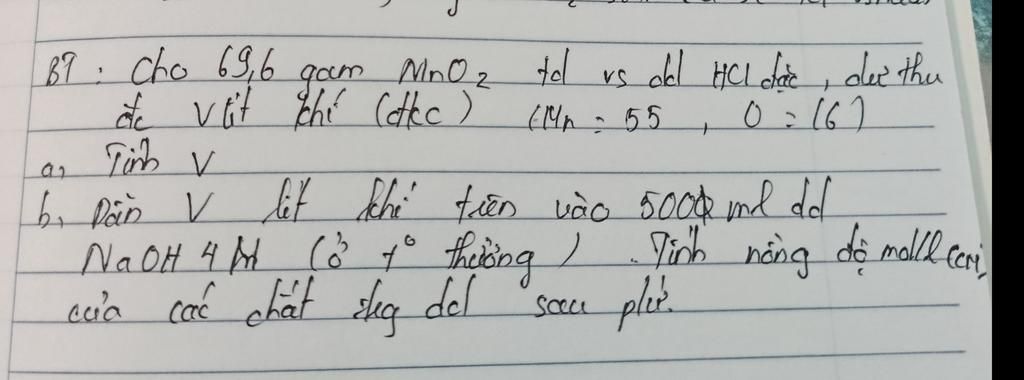 B7 : Cho 69,6 gam MnO2 td vs dd HCl đặc , dư thu
đc V lít khí (đkc) (Mn = 55 , O = 16)
a, Tính V
b, Dẫn V lít khí trên vào 500 ml dd
NaOH 4M (ở t° thường) . Tính nồng độ mol/l (CM)
của các chất trg dd sau pứ.